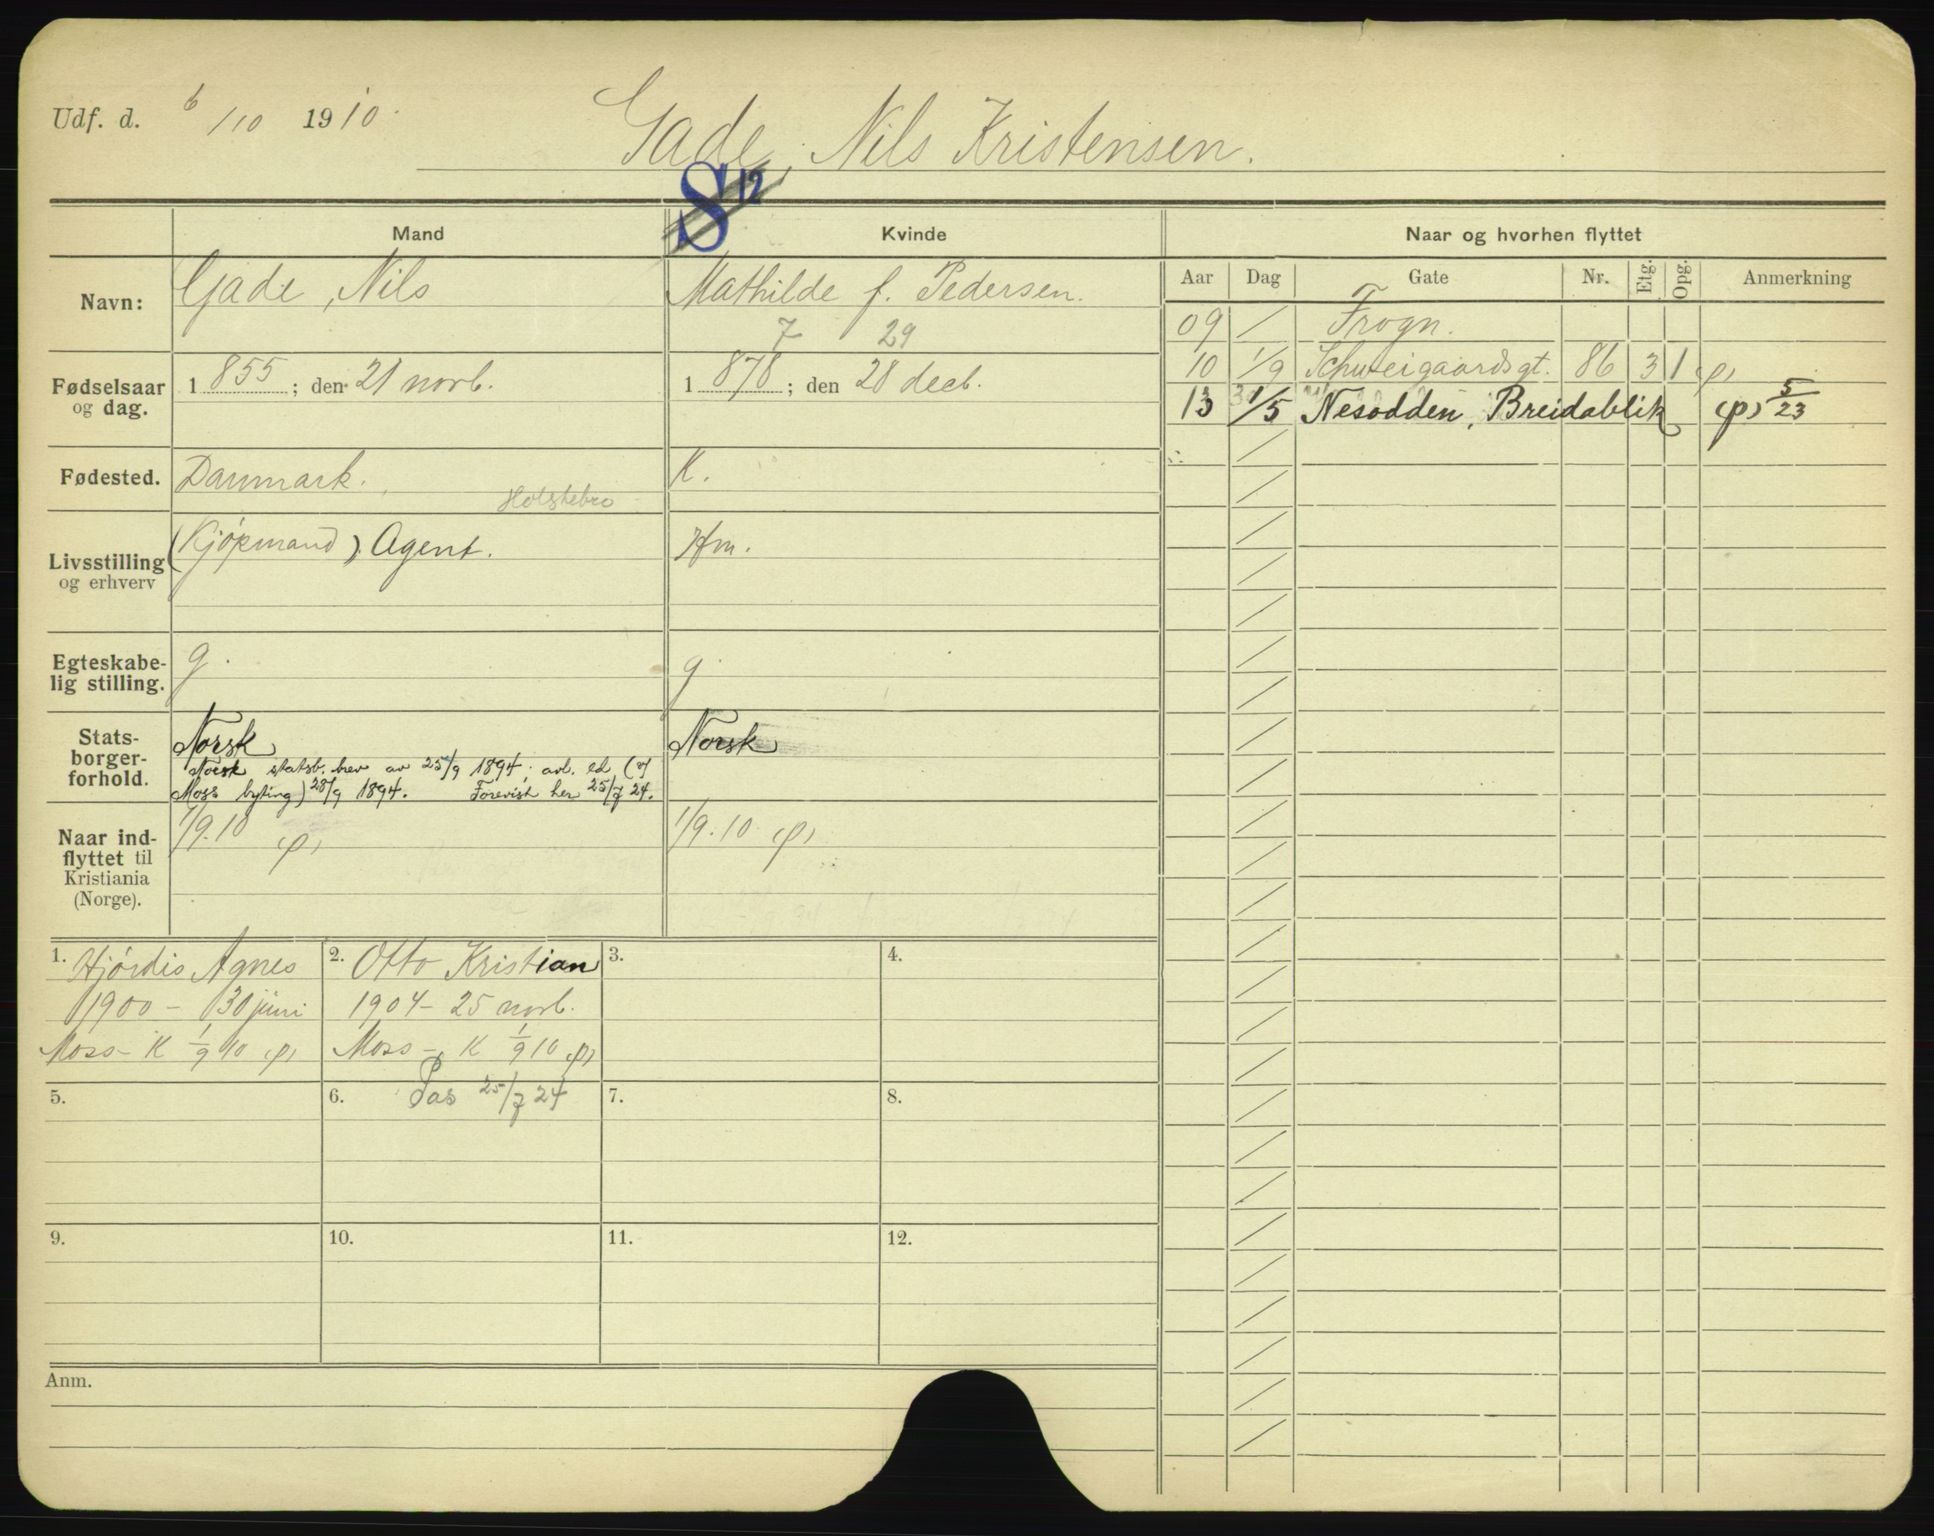 Udf. d. 6/10 1910.
Gade, Nils Kristensen.
S 12
Mand
Kvinde
Naar og hvorhen flyttet
Navn:
Gade, Nils
Mathilde f. Pedersen.
Aar Dag Gate Nr. Etg. Opg. Anmerkning
09 / Frogn.
10 1/9 Schweigaardsgt. 86 3 1 (p)
13 1/5 Nesodden, Breidablik (p) 5/23
Fødselsaar og dag.
1855; den 21 novb.
7 29
1878; den 28 decb.
Fødested.
Danmark. Holstebro
K.
Livsstilling og erhverv
(Kjøpmand) Agent.
Hm.
Egteskabe-
lig stilling.
g.
g
Stats-
borger-
forhold.
Norsk
Norsk statsb. brev av 25/9 1894; avl. ed (v/
Moss byting) 28/9 1894. Forevist her 25/7 24.
Norsk
Naar ind-
flyttet til
Kristiania
(Norge).
1/9.10 (p)
1/9.10 (p)
1. Hjórdis Agnes
1900 - 30 juni
Moss - K 1/9 10 (p)
2. Otto Kristian
1904 - 25 novb.
Moss - K 1/9 10 (p)
3.
4.
5.
6. Pas 25/7 24
7.
8.
9.
10.
11.
12.
Anm.